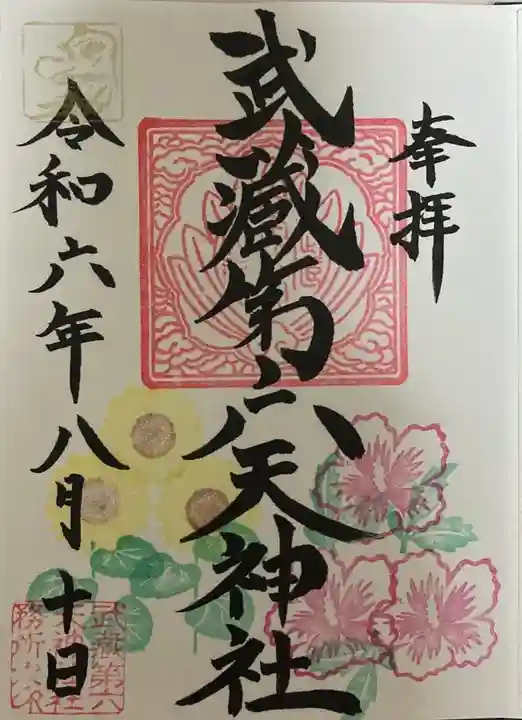 奉拝
武蔵第六天神社
令和六年八月十日
武蔵第六
天神社
務所之印